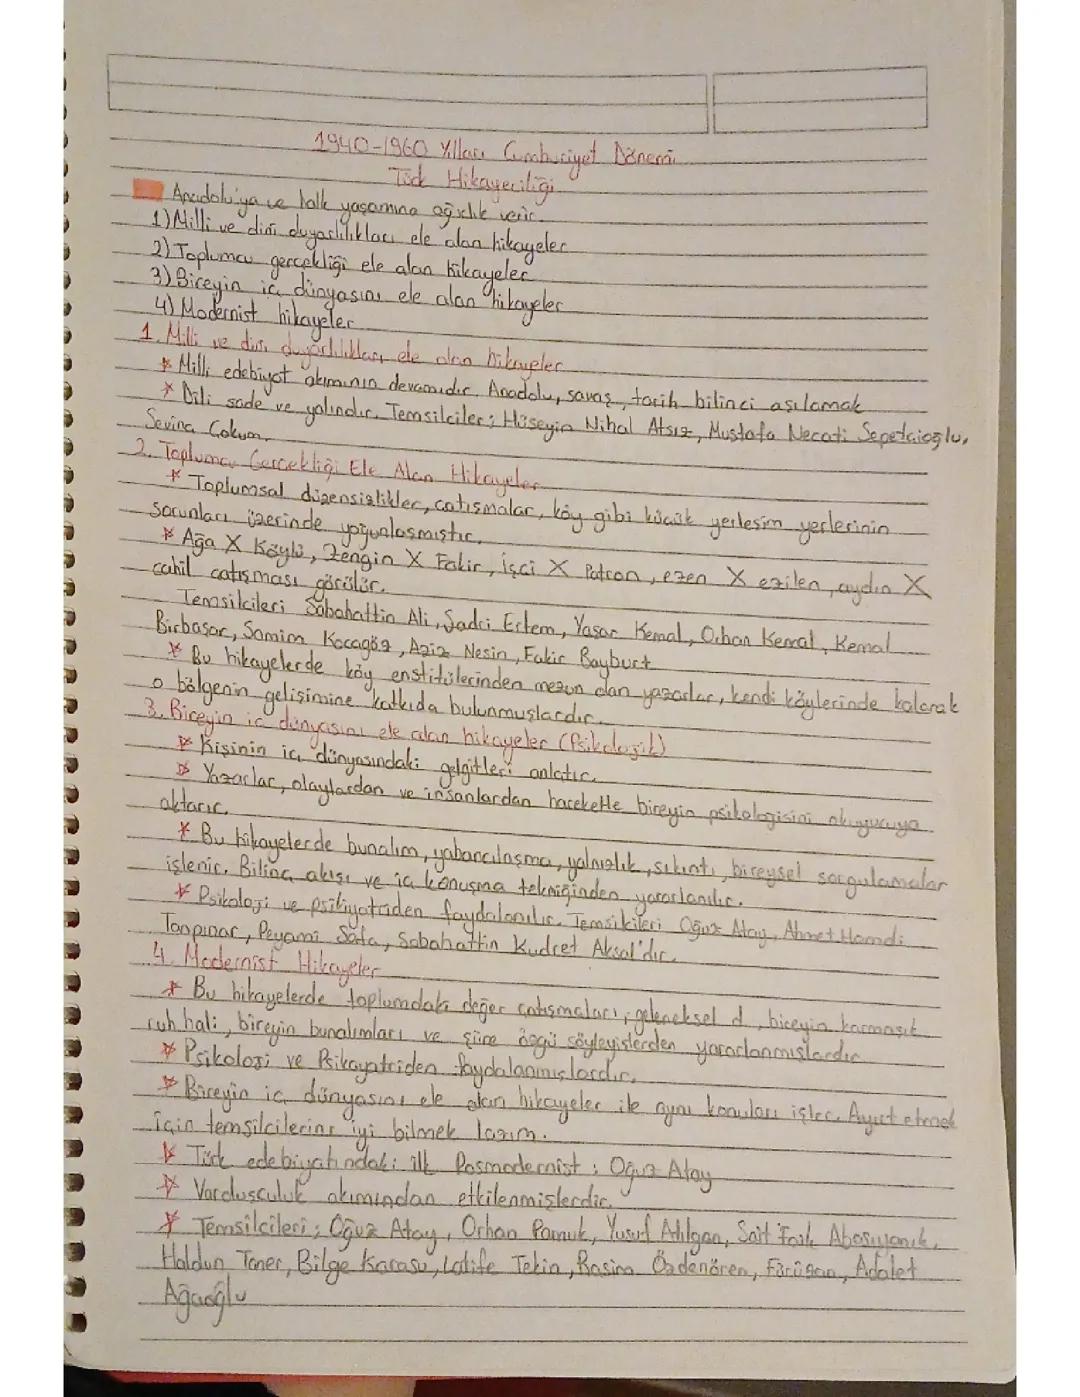 1940-1960 Yılları Cumhuriyet Dönemi
Türk Hikayeciliği
Anadolu'ya ve halk yaşamına ağırlık verir.
1) Milli ve dini duyarlılıkları ele alan hikayeler
2) Toplumcu gerçekliği ele alan hikayeler
3) Bireyin iç dünyasını ele alan hikayeler
4) Modernist hikayeler
1. Milli ve dini duyarlılıkları ele alan hikayeler
* Milli edebiyat akımının devamıdır. Anadolu, savaş, tarih bilinci aşılamak
* Dili sade ve yalındır. Temsilciler; Hüseyin Nihal Atsız, Mustafa Necati Sepetçioğlu,
Sevinç Çokum,
2. Toplumcu Gerçekliği Ele Alan Hikayeler
* Toplumsal düzensizlikler, çatışmalar, köy gibi küçük yerleşim yerlerinin
sorunları üzerinde yoğunlaşmıştır.
* Ağa X Köylü, Zengin X Fakir, işçi X Patron, ezen X ezilen, aydın X
cahil çatışması görülür.
Temsilcileri Sabahattin Ali, Sadri Ertem, Yaşar Kemal, Orhan Kemal, Kemal
Birbaşar, Samim Kocagöz, Aziz Nesin, Fakir Bayburt
* Bu hikayelerde köy enstitülerinden mezun olan yazarlar, kendi köylerinde kalarak
o bölgenin gelişimine katkıda bulunmuşlardır.
3. Bireyin iç dünyasını ele alan hikayeler (Psikolojik)
* Kişinin iç dünyasındaki gelgitleri anlatır.
* Yazarlar, olaylardan ve insanlardan hareketle bireyin psikolojisini okuyucuya
aktarır.
* Bu hikayelerde bunalım, yabancılaşma, yalnızlık, sıkıntı, bireysel sorgulamalar
işlenir. Bilinç akışı ve iç konuşma tekniğinden yararlanılır.
* Psikoloji ve psikiyatriden faydalanılır. Temsilcileri Oğuz Atay, Ahmet Hamdi
Tanpınar, Peyami Safa, Sabahattin Kudret Aksal'dır.
4. Modernist Hikayeler
* Bu hikayelerde toplumdaki değer çatışmaları, geleneksel d, bireyin karmaşık
ruh hali, bireyin bunalımları ve şiire özgü söyleyişlerden yararlanmışlardır
* Psikoloji ve Psikayatriden faydalanmışlardır.
* Bireyin iç dünyasını ele alan hikayeler ile aynı konuları işler. Ayırt etmek
için temsilcilerini iyi bilmek lazım.
* Türk edebiyatındaki ilk Posmodernist: Oğuz Atay
* Varoluşculuk akımından etkilenmişlerdir.
* Temsilcileri; Oğuz Atay, Orhan Pamuk, Yusuf Atılgan, Sait Faik Abasıyanık,
Haldun Taner, Bilge Karasu, Latife Tekin, Rasim Özdenören, Füruzan, Adalet
Ağaoğlu